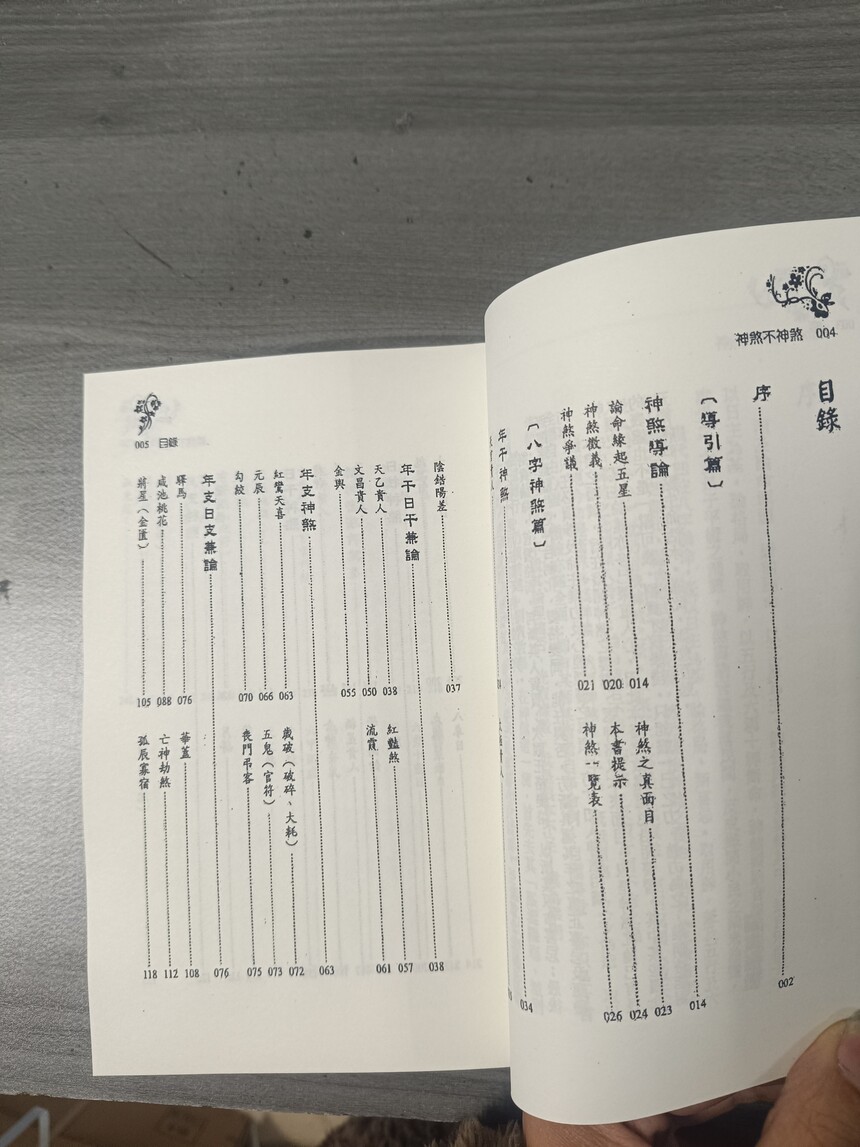 神煞不神煞 004
目錄
序 002
〔導引篇〕
神煞導論 014
論命緣起五星 014
神煞微義 020
神煞爭議 021
神煞之真面目 023
本書提示 024
神煞一覽表 026
〔八字神煞篇〕
年干神煞 034
005 目錄
陰錯陽差 037
年干日干兼論 038
天乙貴人 038
文昌貴人 050
金輿 055
紅豔煞 057
流霞 061
年支神煞 063
紅鸞天喜 063
元辰 066
勾絞 070
歲破（破碎、大耗） 072
五鬼（官符） 073
喪門弔客 075
年支日支兼論 076
驛馬 076
咸池桃花 088
將星（金匱） 105
華蓋 108
亡神劫煞 112
孤辰寡宿 118